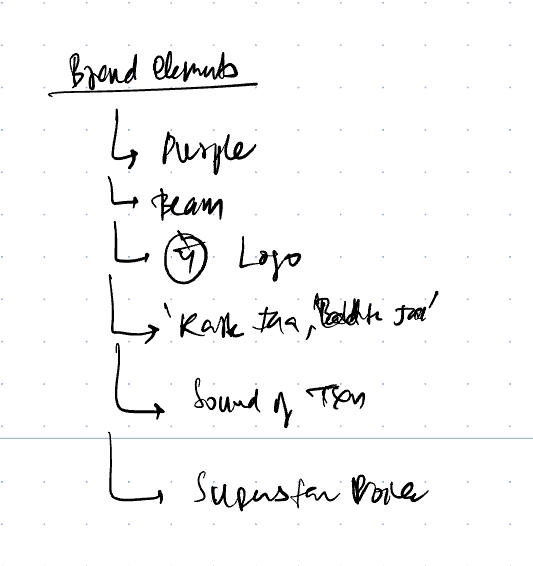 Brand elements
Purple
Beam
Logo
'Karte Jaa, Badhte Jaa'
Sound of Txn
Superstar Voice